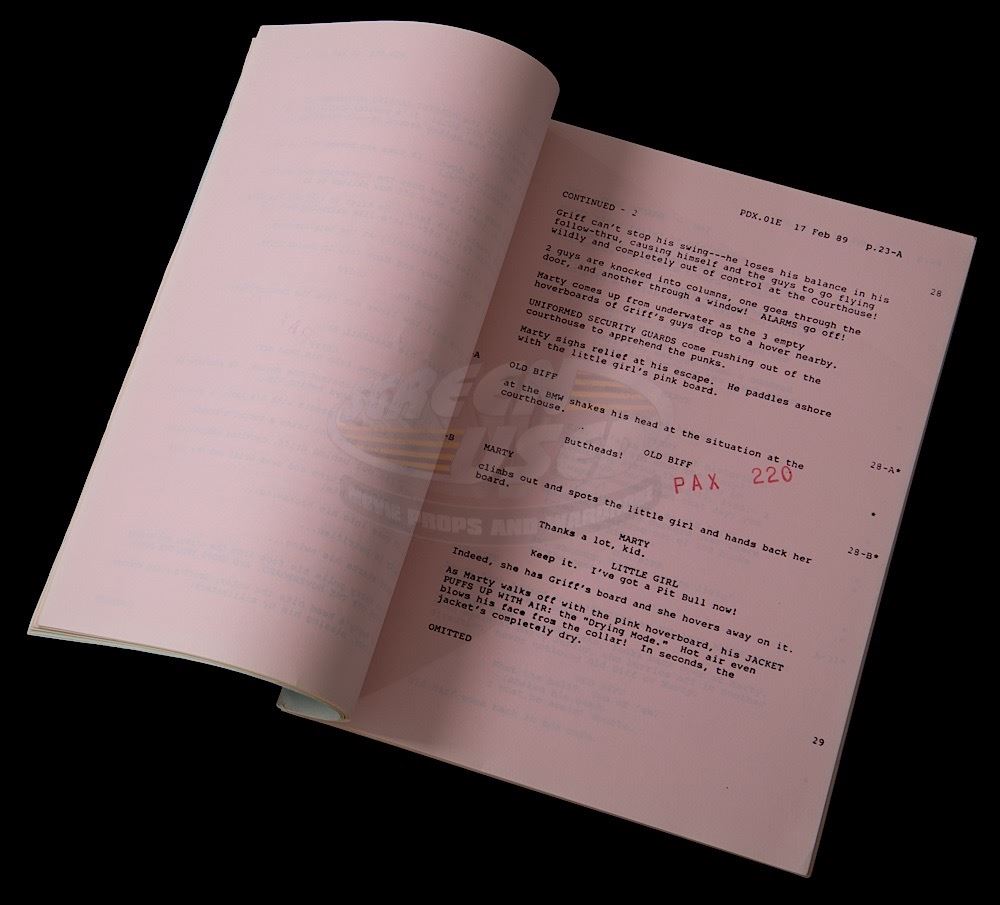 CONTINUED - 2
PDX.01E 17 Feb 89 p.23-A
28
Griff can't stop his swing---he loses his balance in his
follow-thru, causing himself and the guys to go flying
wildly and completely out of control at the Courthouse!
2 guys are knocked into columns, one goes through the
door, and another through a window! ALARMS go off!
Marty comes up from underwater as the 3 empty
hoverboards of Griff's guys drop to a hover nearby.
UNIFORMED SECURITY GUARDS come rushing out of the
courthouse to apprehend the punks.
Marty sighs relief at his escape. He paddles ashore
with the little girl's pink board.
-A OLD BIFF 28-A*
at the BMW shakes his head at the situation at the
courthouse.
OLD BIFF *
Buttheads!
PAX 220
-B MARTY 28-B*
climbs out and spots the little girl and hands back her
board.
MARTY
Thanks a lot, kid.
LITTLE GIRL
Keep it. I've got a Pit Bull now!
Indeed, she has Griff's board and she hovers away on it.
As Marty walks off with the pink hoverboard, his JACKET
PUFFS UP WITH AIR: the "Drying Mode." Hot air even
blows his face from the collar! In seconds, the
jacket's completely dry.
OMITTED 29
MOVIE PROPS AND